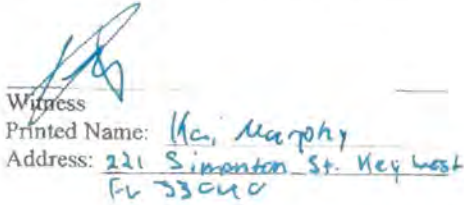 Witness
Printed Name: Kai Murphy
Address: 221 Simonton St. Key West
FL 33040